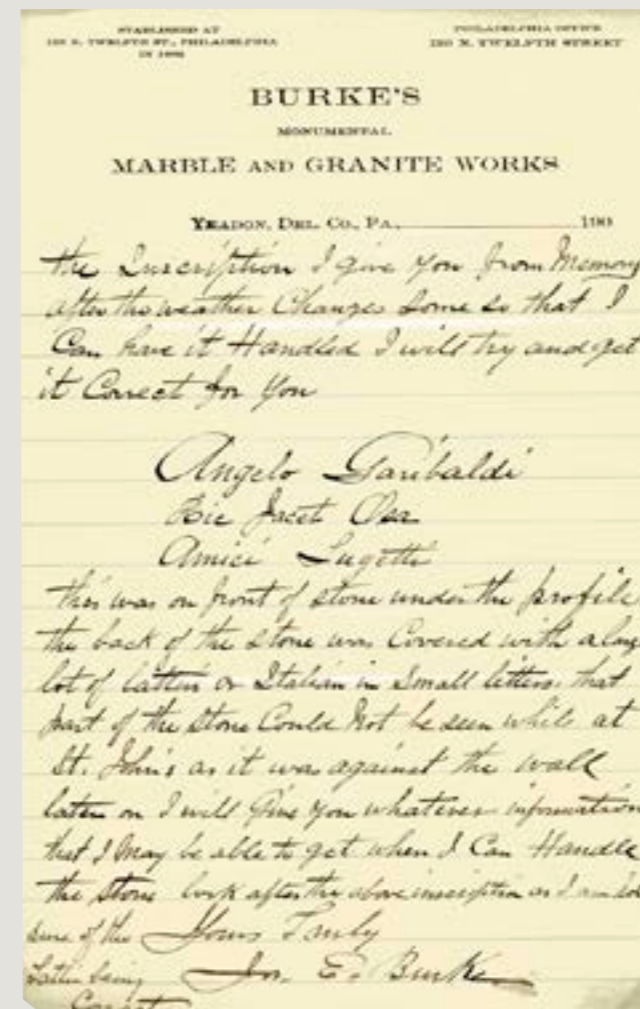 ESTABLISHED AT
TWELFTH ST., PHILADELPHIA
IN
PHILADELPHIA OFFICE
N. TWELFTH STREET
BURKE'S
MONUMENTAL
MARBLE AND GRANITE WORKS
YEADON, DEL. CO., PA., 190
the Inscription I give you from Memory
after the weather Changes some so that I
Can have it Handled I will try and get
it Correct for You
Angelo Garibaldi
Hic Jacet Osa
Amici Lugette
this was on front of stone under the profile
the back of the stone was Covered with a long
lot of lattin or Italian in Small letters. that
part of the Stone Could Not be seen while at
St. John's as it was against the wall
later on I will Give you whatever information
that I May be able to get when I Can Handle
the stone look after the above inscription as I am not
sure of the Yours Truly
Lattin being Jos. E. Burke
Correct